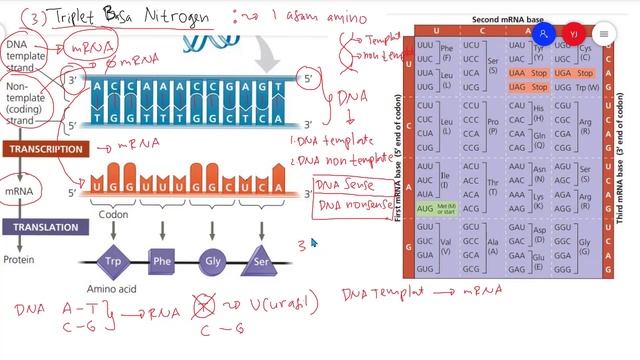 (3) Triplet Basa Nitrogen : ~> 1 asam amino
DNA
template
strand
mRNA
Non-
template
(coding)
strand
mRNA
3'
5'
A C C A A A C C G A G T
T G G T T T G G C T C A
5'
3'
Templat
non templat
DNA
1. DNA template
2. DNA non template
DNA Sense
DNA nonsense
TRANSCRIPTION
mRNA
mRNA
5'
U G G U U U G G C U C A
3'
Codon
TRANSLATION
Protein
Trp
Phe
Gly
Ser
Amino acid
3
DNA A-T
C-G
RNA
T ~> U(urasil)
C - G
DNA Templat → mRNA
Second mRNA base
U C A
YJ
First mRNA base (5' end of codon)
Third mRNA base (3' end of codon)
U
UUU Phe (F)
UUC
UUA Leu (L)
UUG
UCU Ser (S)
UCC
UCA
UCG
UAU Tyr (Y)
UAC
UAA Stop
UAG Stop
UGU Cys (C)
UGC
UGA Stop
UGG Trp (W)
U C A G
C
CUU Leu (L)
CUC
CUA
CUG
CCU Pro (P)
CCC
CCA
CCG
CAU His (H)
CAC
CAA Gln (Q)
CAG
CGU Arg (R)
CGC
CGA
CGG
U C A G
A
AUU Ile (I)
AUC
AUA
AUG Met (M) or start
ACU Thr (T)
ACC
ACA
ACG
AAU Asn (N)
AAC
AAA Lys (K)
AAG
AGU Ser (S)
AGC
AGA Arg (R)
AGG
U C A G
G
GUU Val (V)
GUC
GUA
GUG
GCU Ala (A)
GCC
GCA
GCG
GAU Asp (D)
GAC
GAA Glu (E)
GAG
GGU Gly (G)
GGC
GGA
GGG
U C A G